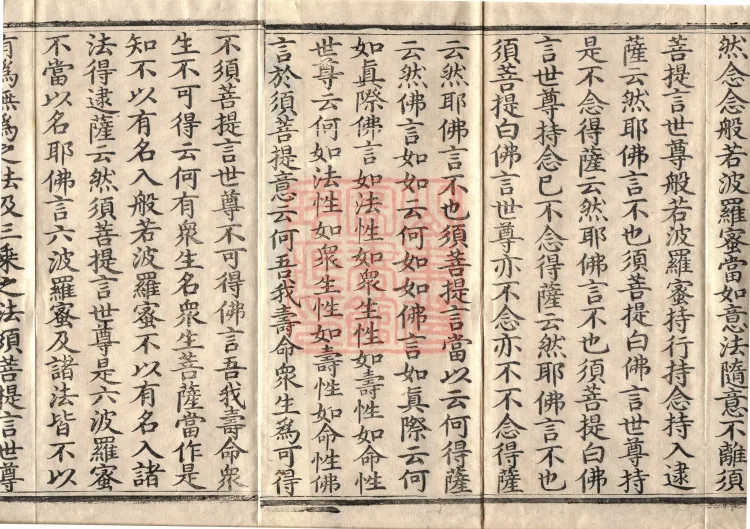 然念念般若波羅蜜當如意法隨意不離須
菩提言世尊般若波羅蜜持行持念持入逮
薩云然耶佛言不也須菩提白佛言世尊持
是不念得薩云然耶佛言不也須菩提白佛
言世尊持念已不念得薩云然耶佛言不也
須菩提白佛言世尊亦不念亦不不念得薩
云然耶佛言不也須菩提言當以云何得薩
云然佛言如如云何如如佛言如眞際云何
如眞際佛言如法性如衆生性如壽性如命性
世尊云何如法性如衆生性如壽性如命性佛
言於須菩提意云何吾我壽命衆生爲可得
不須菩提言世尊不可得佛言吾我壽命衆
生不可得云何有衆生名衆生菩薩當作是
知不以有名入般若波羅蜜不以有名入諸
法得逮薩云然須菩提言世尊是六波羅蜜
不當以名耶佛言六波羅蜜及諸法皆不以
有爲無爲之法及三乘之法須菩提言世尊